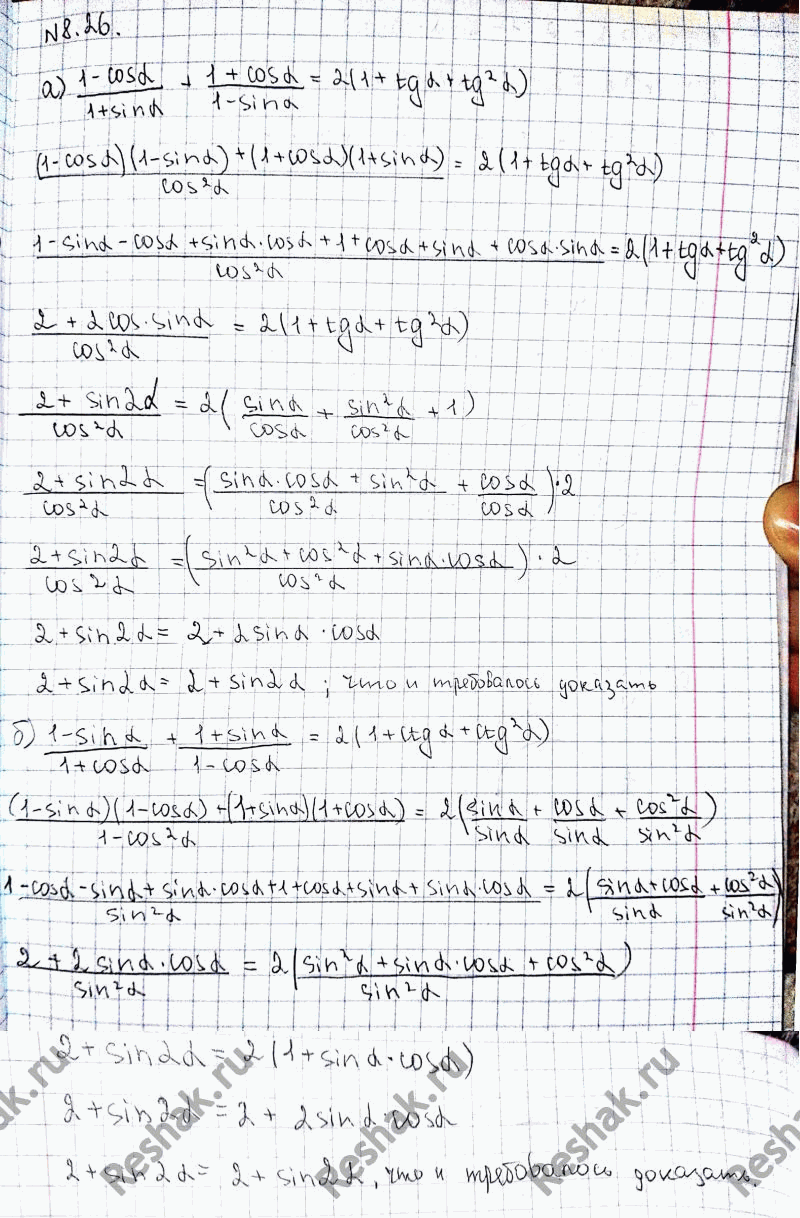 №8.26.
а) (1-cosα)/(1+sinα) + (1+cosα)/(1-sinα) = 2(1+tgα+tg²α)
((1-cosα)(1-sinα)+(1+cosα)(1+sinα))/(cos²α) = 2(1+tgα+tg²α)
(1-sinα-cosα+sinα·cosα+1+cosα+sinα+cosα·sinα)/(cos²α) = 2(1+tgα+tg²α)
(2+2cos·sinα)/(cos²α) = 2(1+tgα+tg²α)
(2+sin2α)/(cos²α) = 2(sinα/cosα + sin²α/cos²α + 1)
(2+sin2α)/(cos²α) = ((sinα·cosα+sin²α)/(cos²α) + cosα/cosα)·2
(2+sin2α)/(cos²α) = ((sin²α+cos²α+sinα·cosα)/(cos²α))·2
2+sin2α = 2+2sinα·cosα
2+sin2α = 2+sin2α; что и требовалось доказать
б) (1-sinα)/(1+cosα) + (1+sinα)/(1-cosα) = 2(1+ctgα+ctg²α)
((1-sinα)(1-cosα)+(1+sinα)(1+cosα))/(1-cos²α) = 2(sinα/sinα + cosα/sinα + cos²α/sin²α)
(1-cosα-sinα+sinα·cosα+1+cosα+sinα+sinα·cosα)/(sin²α) = 2((sinα+cosα)/(sinα) + cos²α/sin²α)
(2+2sinα·cosα)/(sin²α) = 2((sin²α+sinα·cosα+cos²α)/(sin²α))
2+sin2α = 2(1+sinα·cosα)
2+sin2α = 2+2sinα·cosα
2+sin2α = 2+sin2α, что и требовалось доказать.
Reshak.ru
Reshak.ru
Reshak.ru